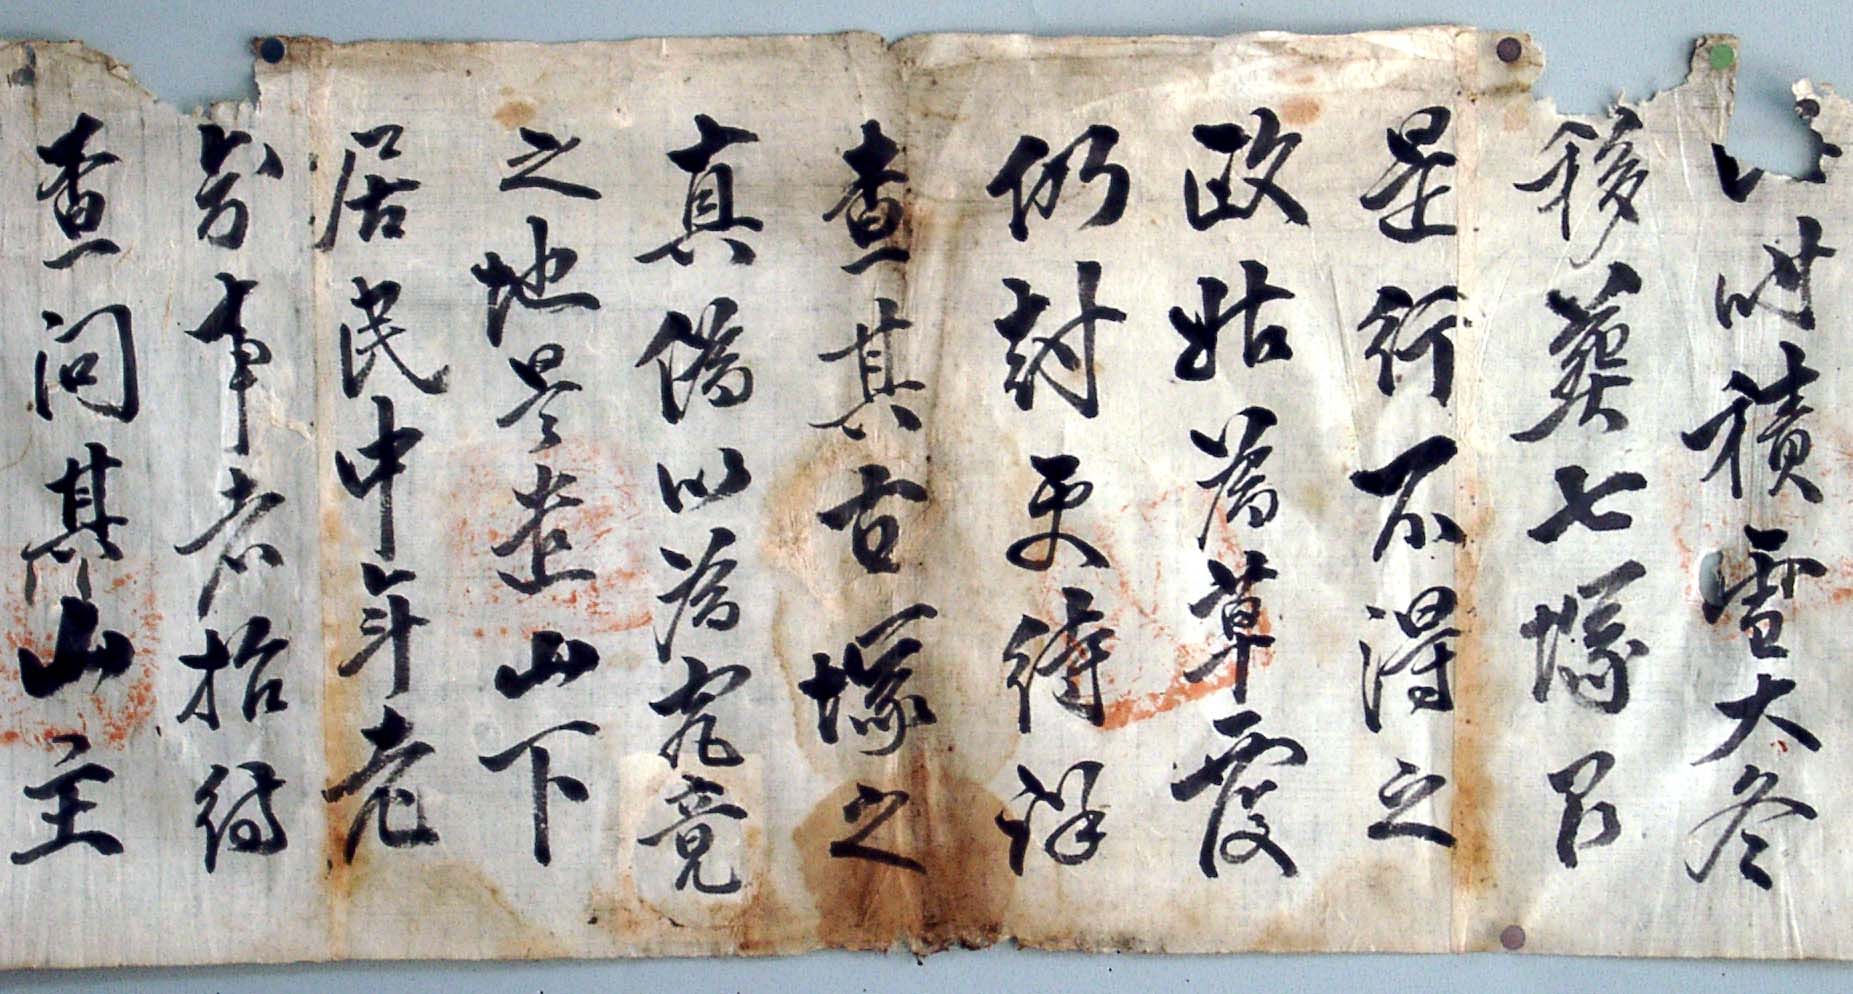 時積雪大冬
移葬七塚
是行不得之
政姑爲草覆
仍封更待詳
查其古塚之
真僞以爲究竟
之地是遣山下
居民中年老
事者招待
查問其山主